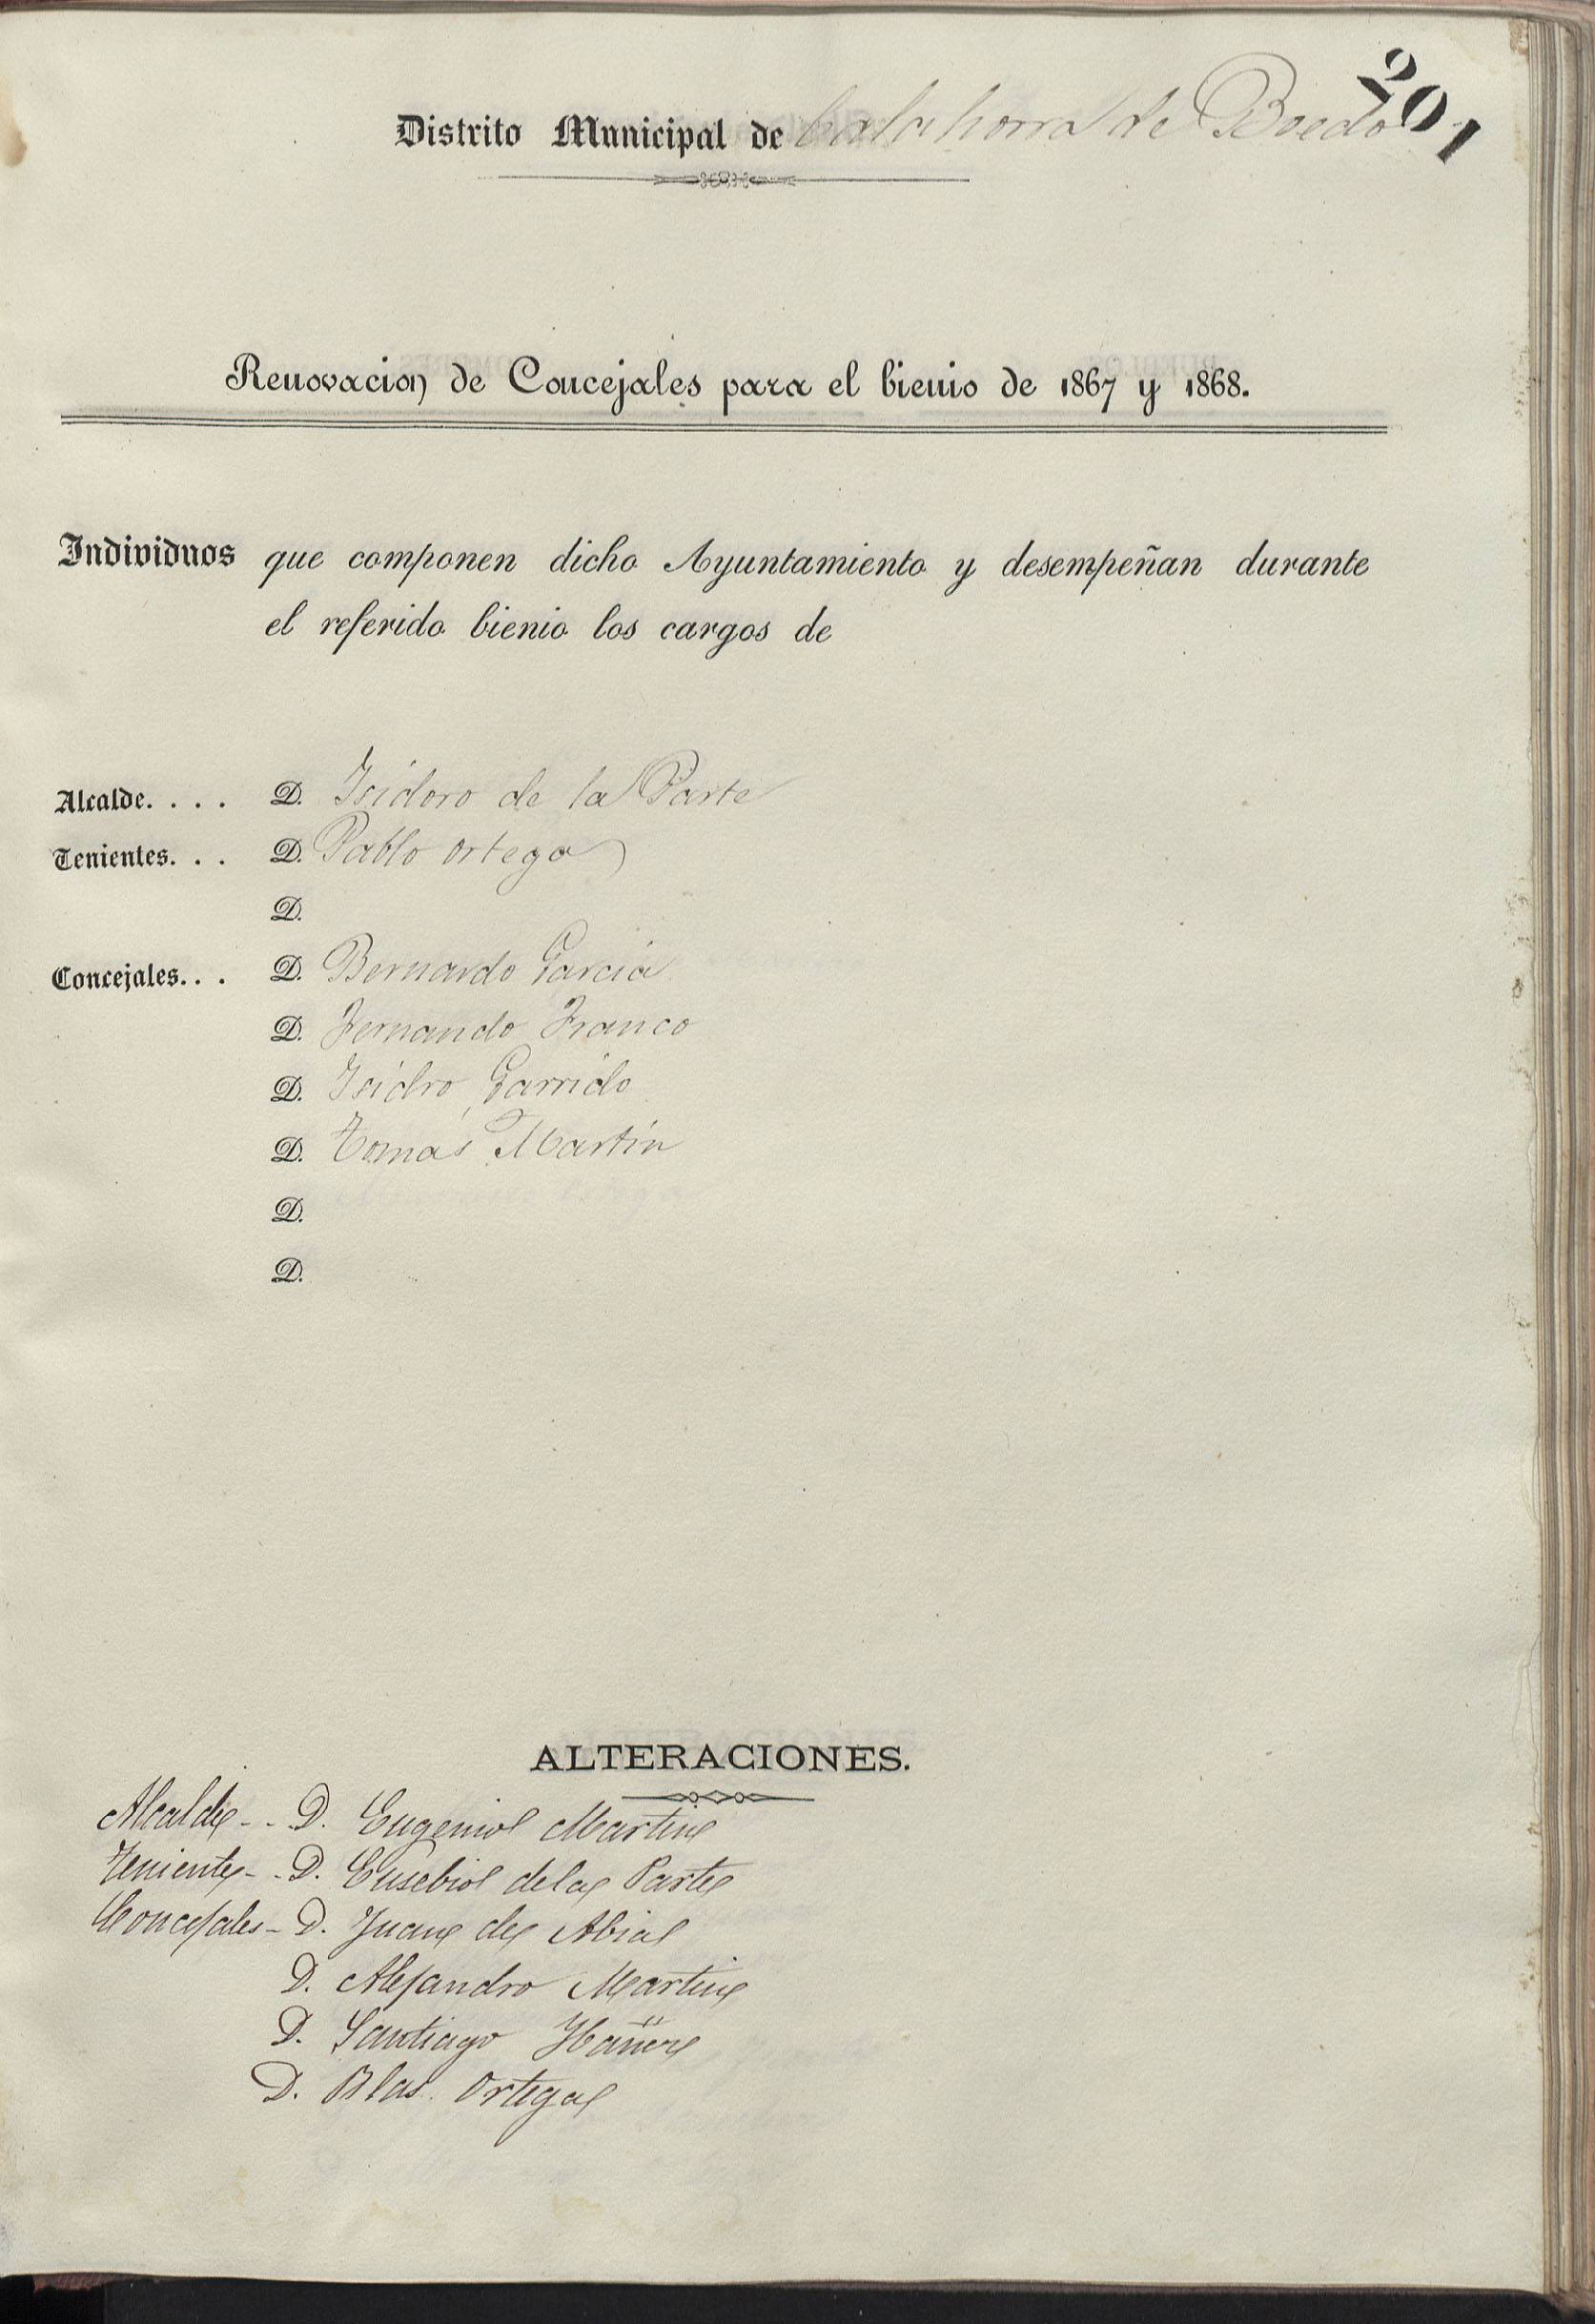 201
Distrito Municipal de Calahorra de Boedo
Renovacion de Concejales para el bienio de 1867 y 1868.
Individuos que componen dicho Ayuntamiento y desempeñan durante
el referido bienio los cargos de
Alcalde. . . . D. Isidoro de la Parte
Tenientes. . . D. Pablo Ortega
D.
Concejales. . . D. Bernardo Garcia
D. Fernando Franco
D. Isidro Garrido
D. Tomás Martín
D.
D.
ALTERACIONES.
Alcalde - - D. Eugenio Martin
Teniente - - D. Eusebio de la Parte
Concejales - D. Juan de Abia
D. Alejandro Martin
D. Santiago Ibañez
D. Blas Ortega